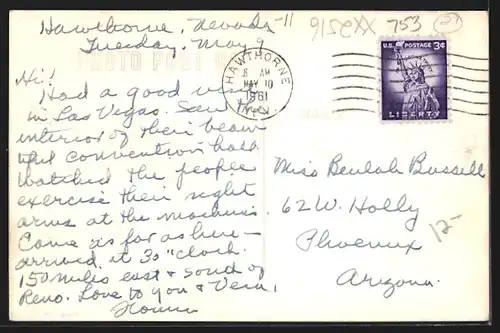 Hawthorne, Nevada-11
Tuesday, May 9
PHOTO POST
Hi!
Had a good visit
in Las Vegas. Saw the
interior of their beau
tiful convention hall
Watched the people
exercise their right
arms at the machines.
Came as far as here -
arrived at 3 o'clock.
150 miles east & south of
Reno. Love to you & Vera,
HAWTHORNE
AM
MAY 10
1961
NEV.
915CXX 753
U.S. POSTAGE 3¢
LIBERTY
Miss Beulah Bussell
62 W. Holly
Phoenix
Arizona.
12-